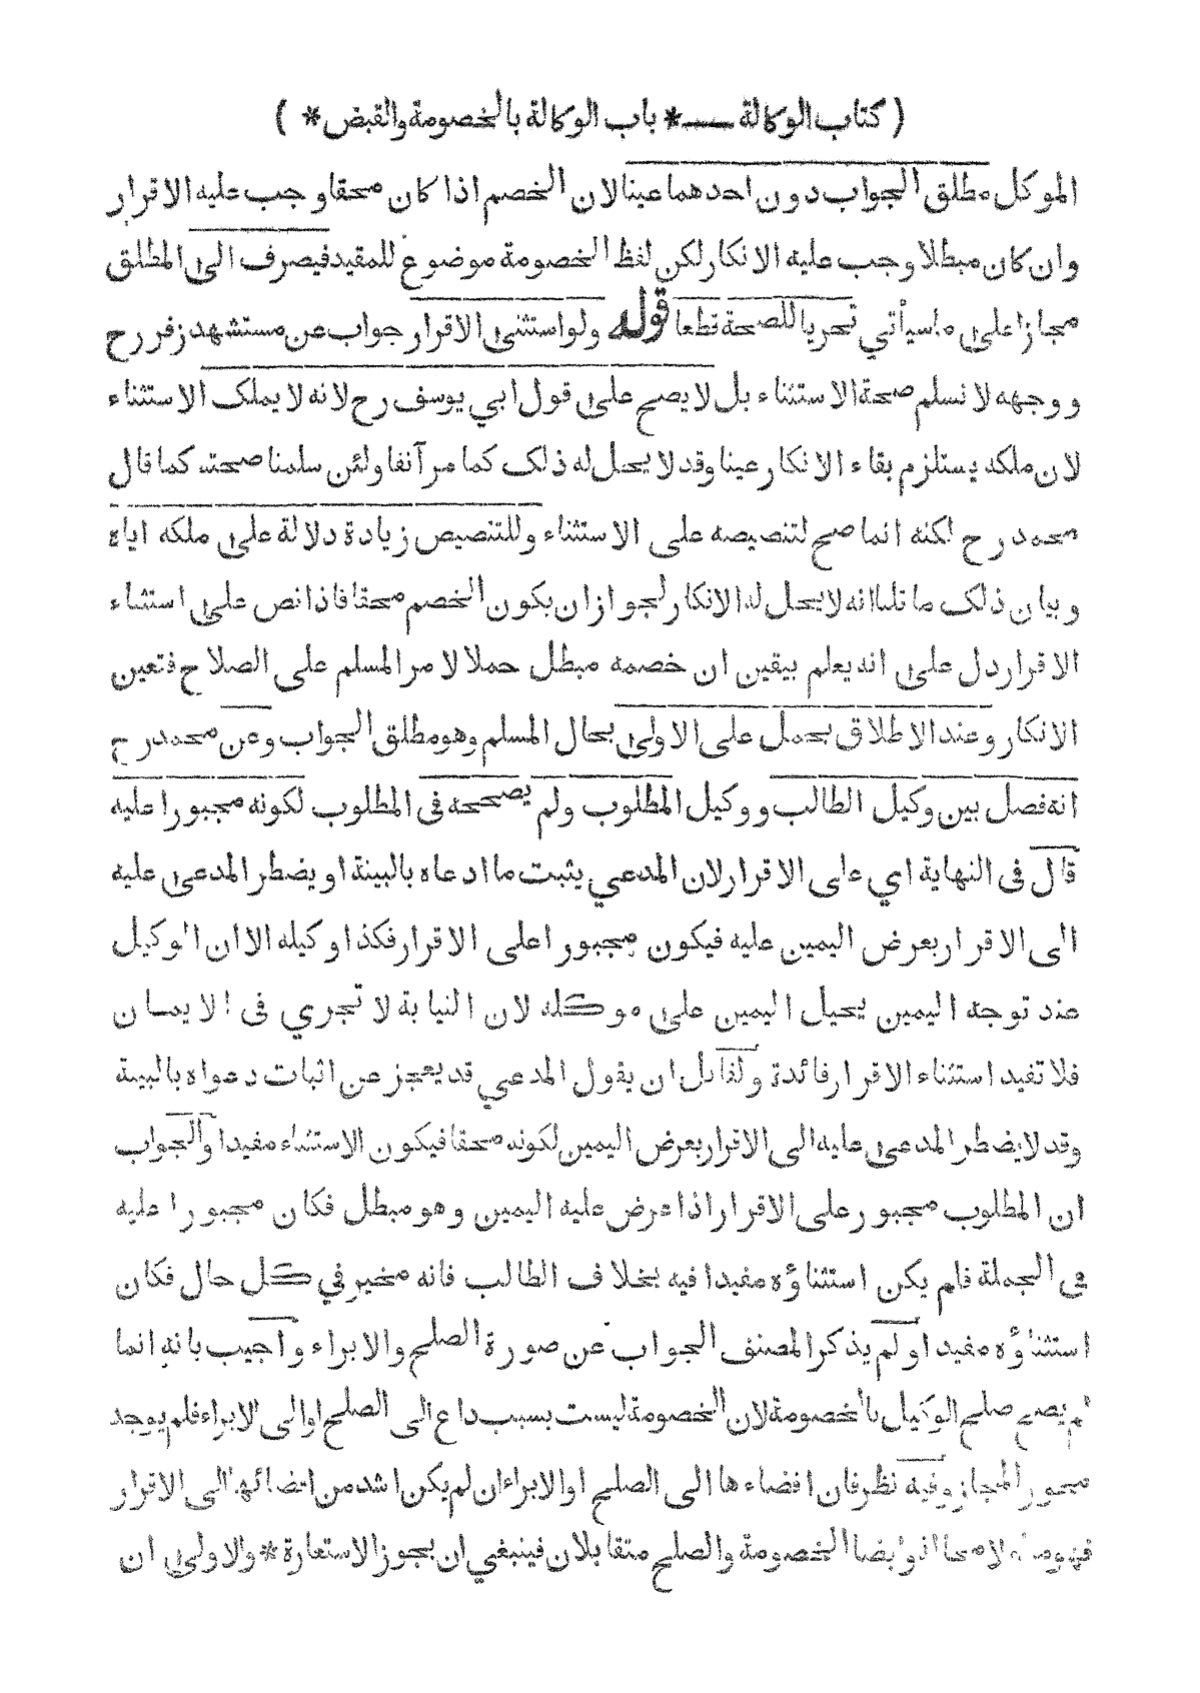 ( كتاب الوكالة — * باب الوكالة بالخصومة والقبض * )
الموكل مطلق الجواب دون احدهما عينا لان الخصم اذا كان محقا وجب عليه الاقرار
وان كان مبطلا وجب عليه الانكار لكن لفظ الخصومة موضوع للمقيد فيصرف الى المطلق
مجازا على ماسيأتي تحريا للصحة قطعا قوله ولو استثنى الاقرار جواب عن مستشهد زفر رح
ووجهه لا نسلم صحة الاستثناء بل لا يصح على قول ابي يوسف رح لانه لا يملك الاستثناء
لان ملكه يستلزم بقاء الانكار عينا وقد لا يحل له ذلك كما مر آنفا ولئن سلمنا صحته كما قال
محمد رح لكنه انما صح لتنصيصه على الاستثناء وللتنصيص زيادة دلالة على ملكه اياه
وبيان ذلك ما قلنا انه لا يحل له الانكار لجواز ان يكون الخصم محقا فاذا نص على استثناء
الاقرار دل على انه يعلم بيقين ان خصمه مبطل حملا لامر المسلم على الصلاح فتعين
الانكار وعند الاطلاق يحمل على الاولى بحال المسلم وهو مطلق الجواب وعن محمد رح
انه فصل بين وكيل الطالب ووكيل المطلوب ولم يصححه فى المطلوب لكونه مجبورا عليه
قال فى النهاية اي على الاقرار لان المدعي يثبت ما ادعاه بالبينة او يضطر المدعى عليه
الى الاقرار بعرض اليمين عليه فيكون مجبورا على الاقرار فكذا وكيله الا ان الوكيل
عند توجه اليمين يحيل اليمين على موكله لان النيابة لا تجري فى الايمان
فلا تفيد استثناء الاقرار فائدة ولقائل ان يقول المدعي قد يعجز عن اثبات دعواه بالبينة
وقد لا يضطر المدعى عليه الى الاقرار بعرض اليمين لكونه محقا فيكون الاستثناء مفيدا والجواب
ان المطلوب مجبور على الاقرار اذا عرض عليه اليمين وهو مبطل فكان مجبورا عليه
فى الجملة فلم يكن استثناؤه مفيدا فيه بخلاف الطالب فانه مخير في كل حال فكان
استثناؤه مفيدا ولم يذكر المصنف الجواب عن صورة الصلح والابراء واجيب بانه انما
لم يصح صلح الوكيل بالخصومة لان الخصومة ليست بسبب داع الى الصلح او الى الابراء فلم يوجد
مجوز المجاز وفيه نظر فان افضاءها الى الصلح او الابراء ان لم يكن اشد من افضائها الى الاقرار
لا محالة وايضا الخصومة والصلح متقابلان فينبغي ان يجوز الاستعارة * والاولى ان